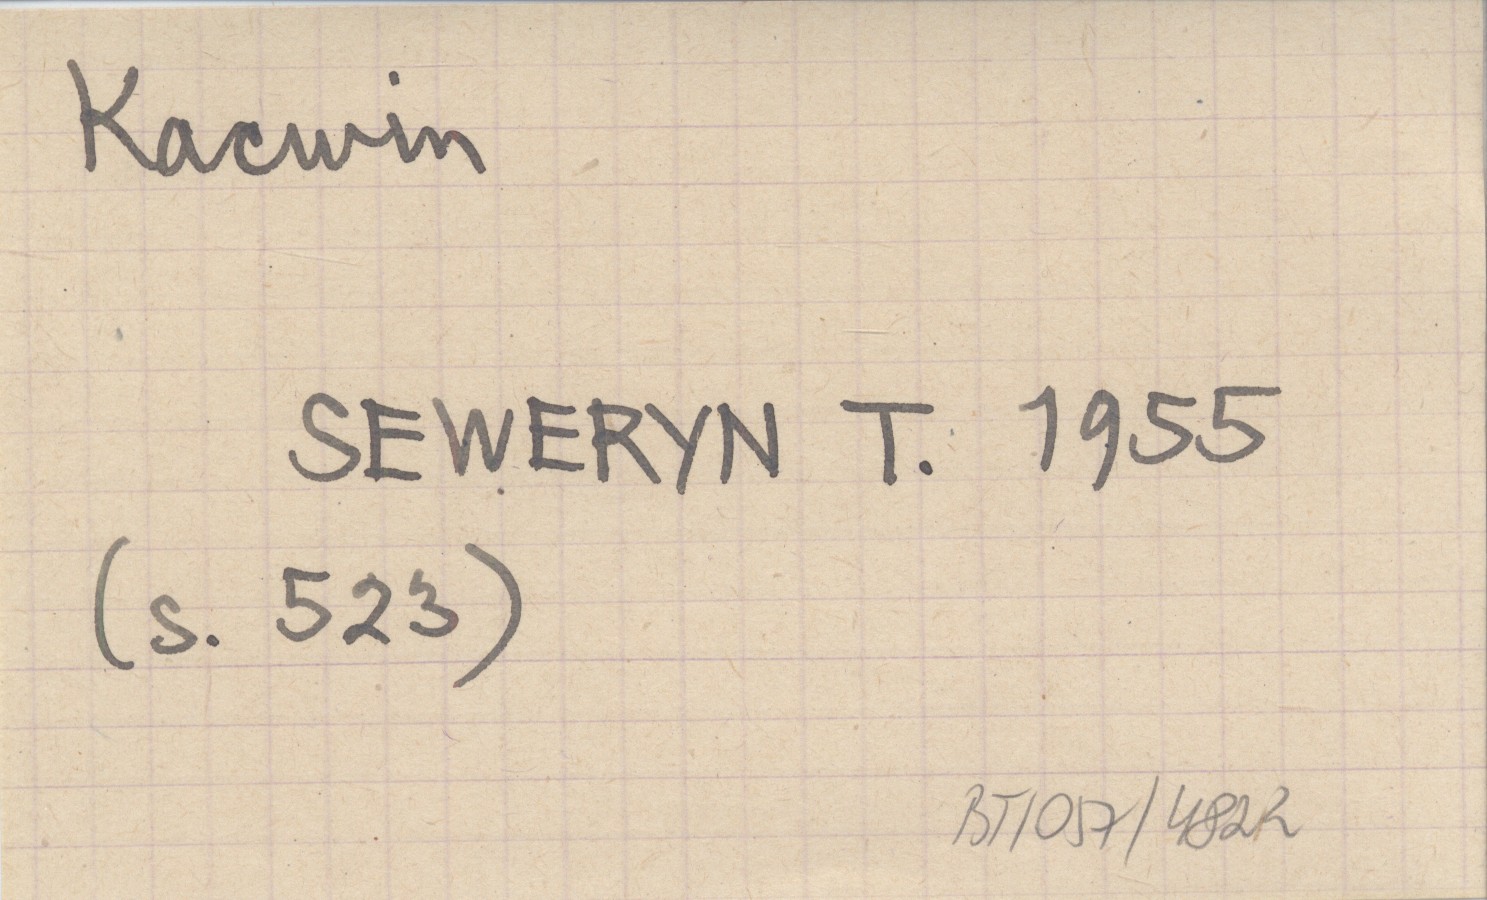 Kacwin
SEWERYN T. 1955
(s. 523)
BT/057/482R